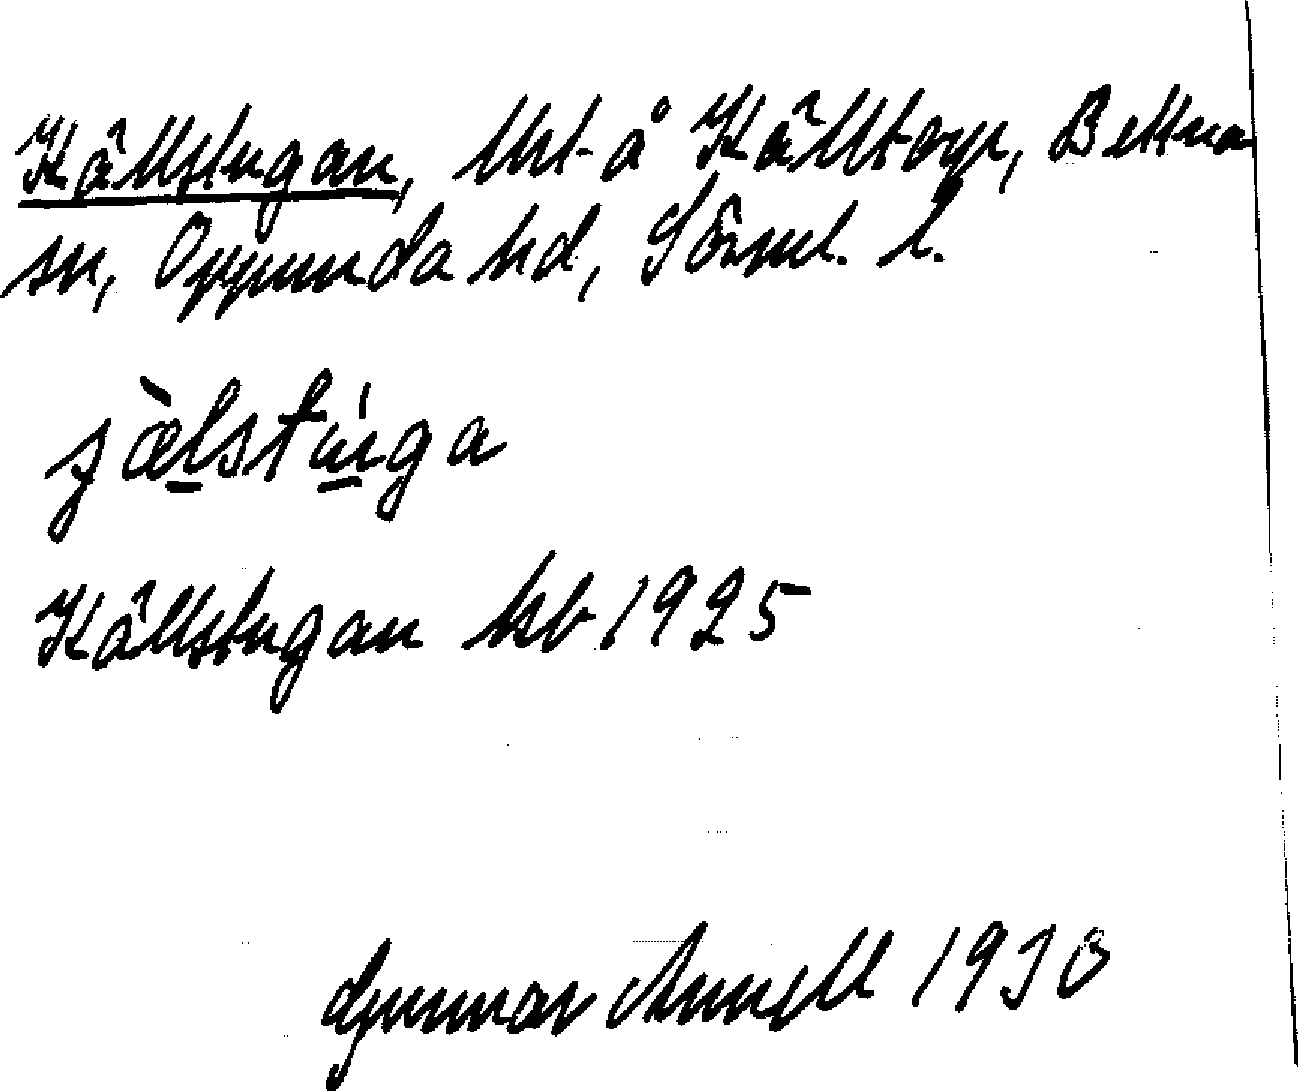 Källstugan, lht å Källtorp, Bettna
sn, Oppunda hd, Sörml. l.
ʃæ̀lstúga
Källstugan kb 1925
Gunnar Annell 1930